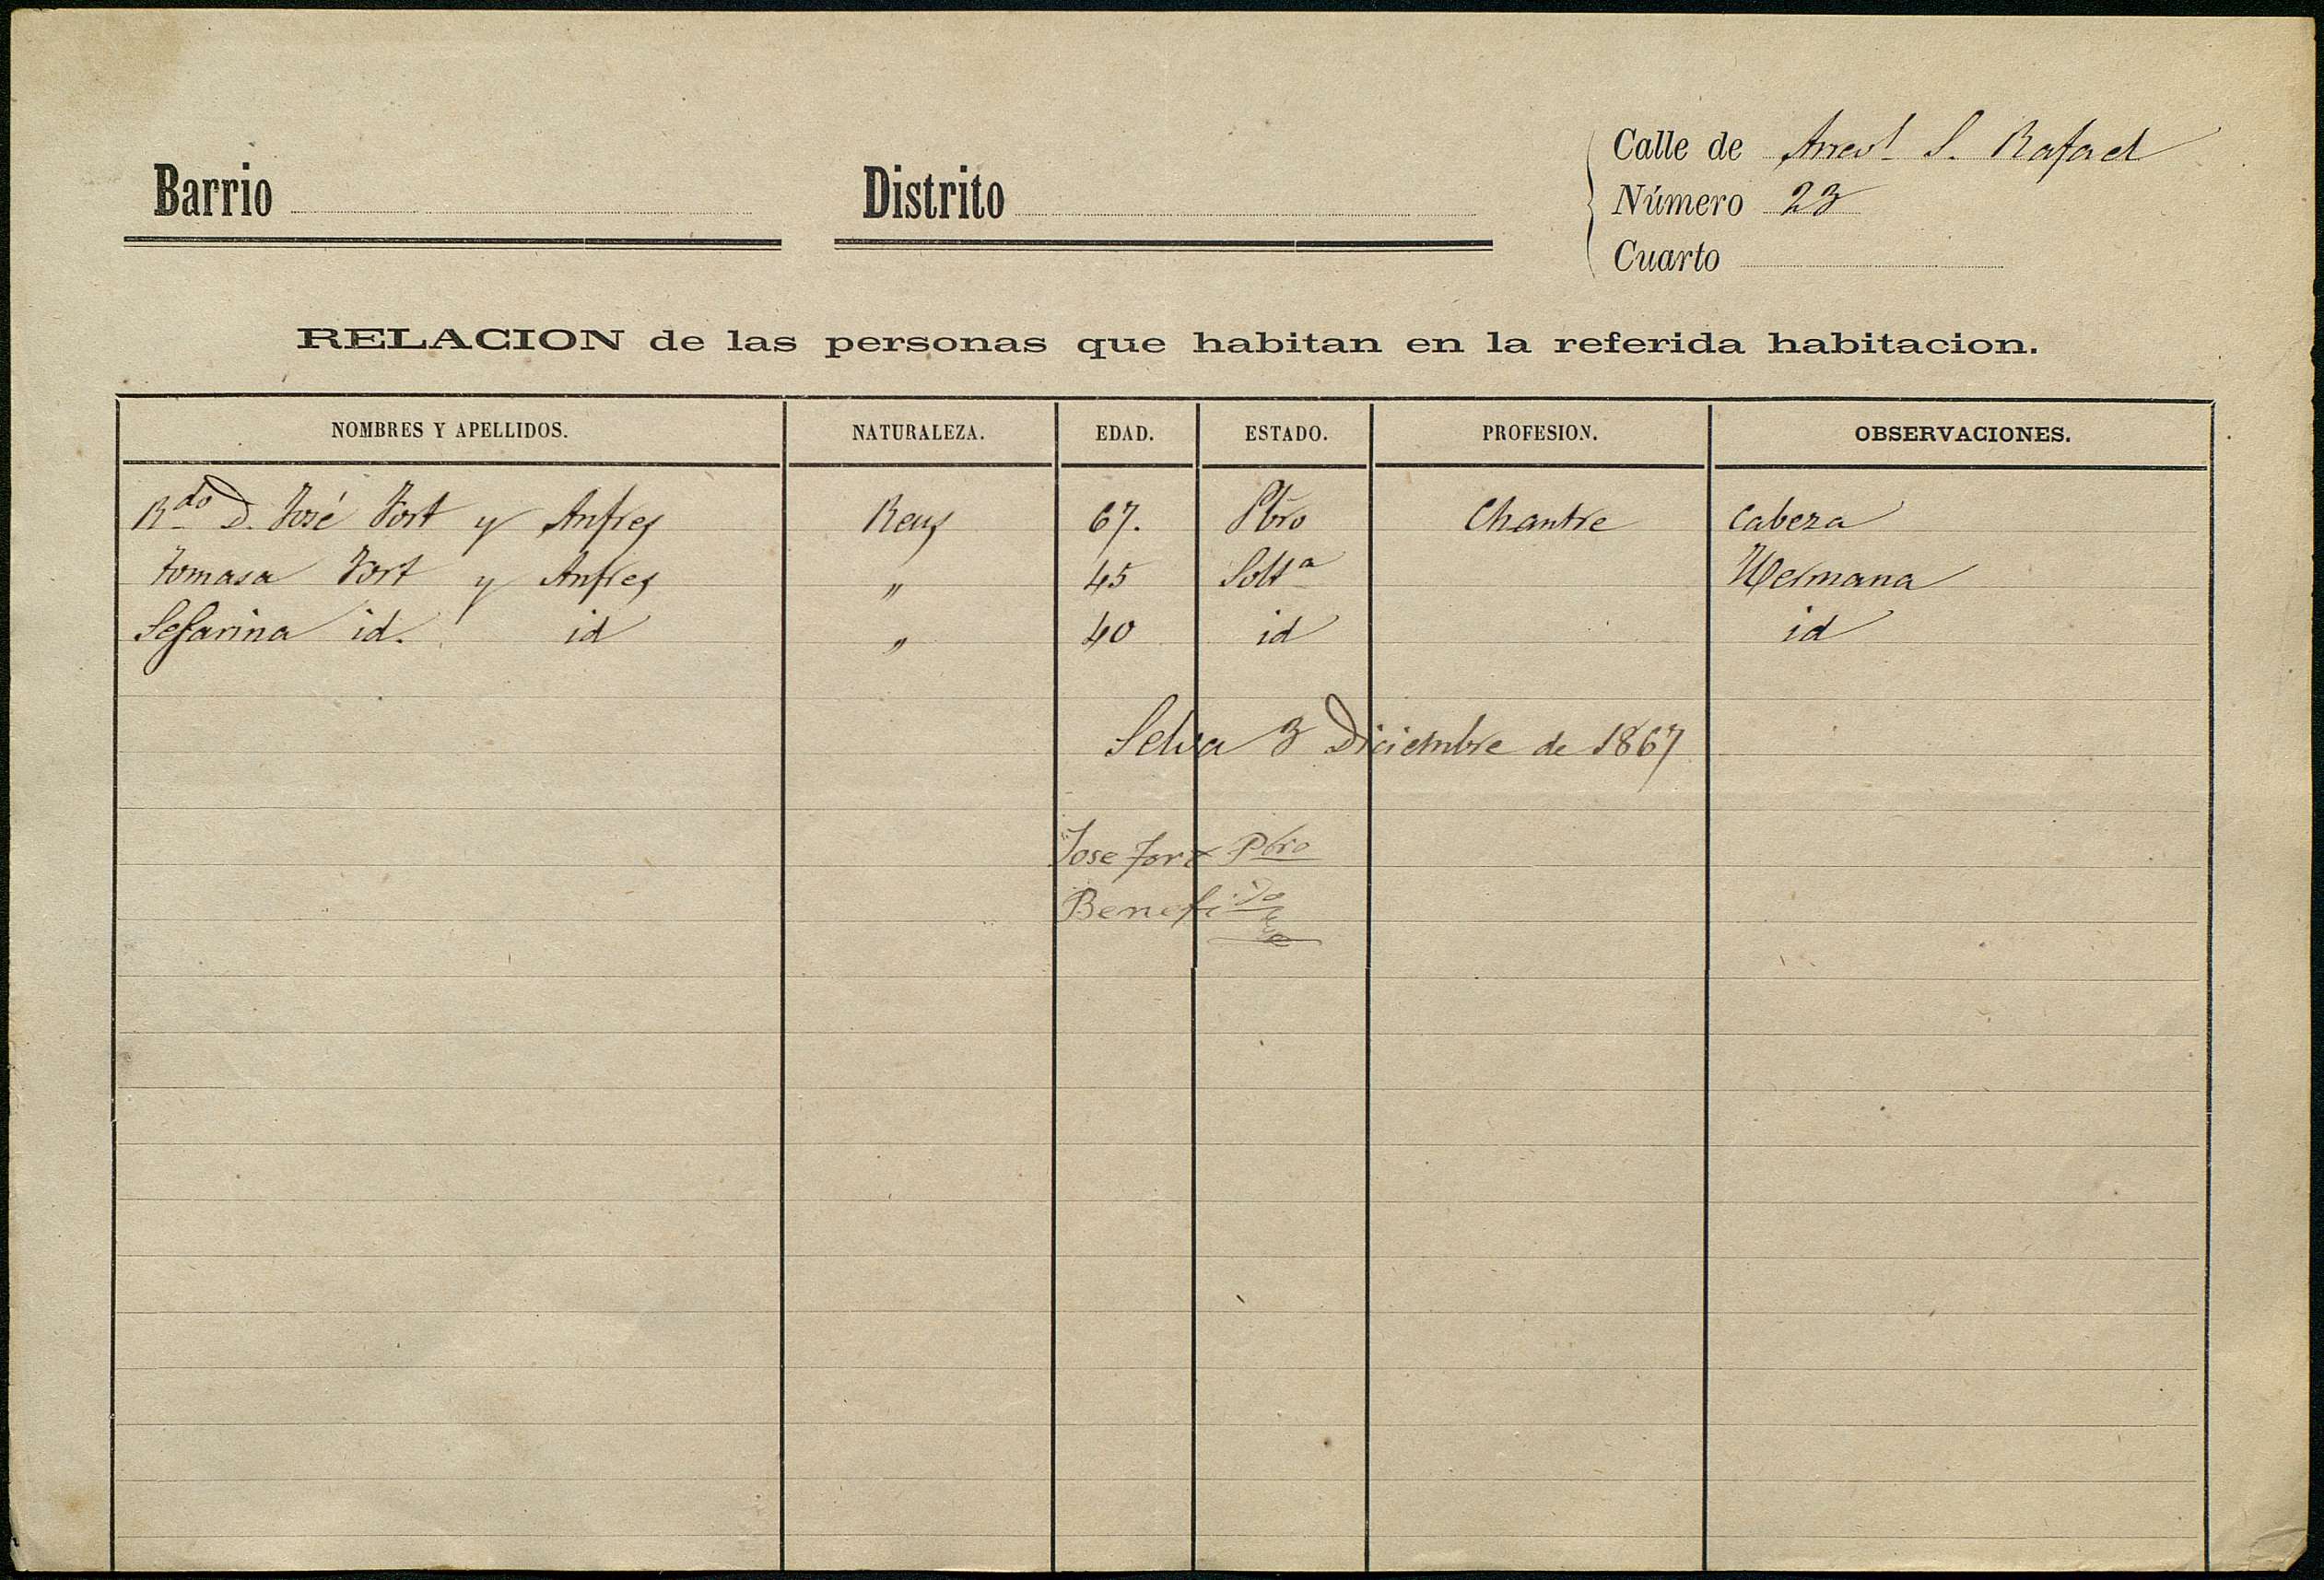 Barrio
Distrito
Calle de Arrevl. S. Rafael
Número 23
Cuarto
RELACION de las personas que habitan en la referida habitacion.
NOMBRES Y APELLIDOS. NATURALEZA. EDAD. ESTADO. PROFESION. OBSERVACIONES.
Rdo D. José Fort y Anfres Reus 67. Pbro Chantre Cabeza
Tomasa Fort y Anfres " 45 Solta Hermana
Sefarina id. id " 40 id id
Selva 3 Diciembre de 1867
Jose Fort Pbro
Benefido